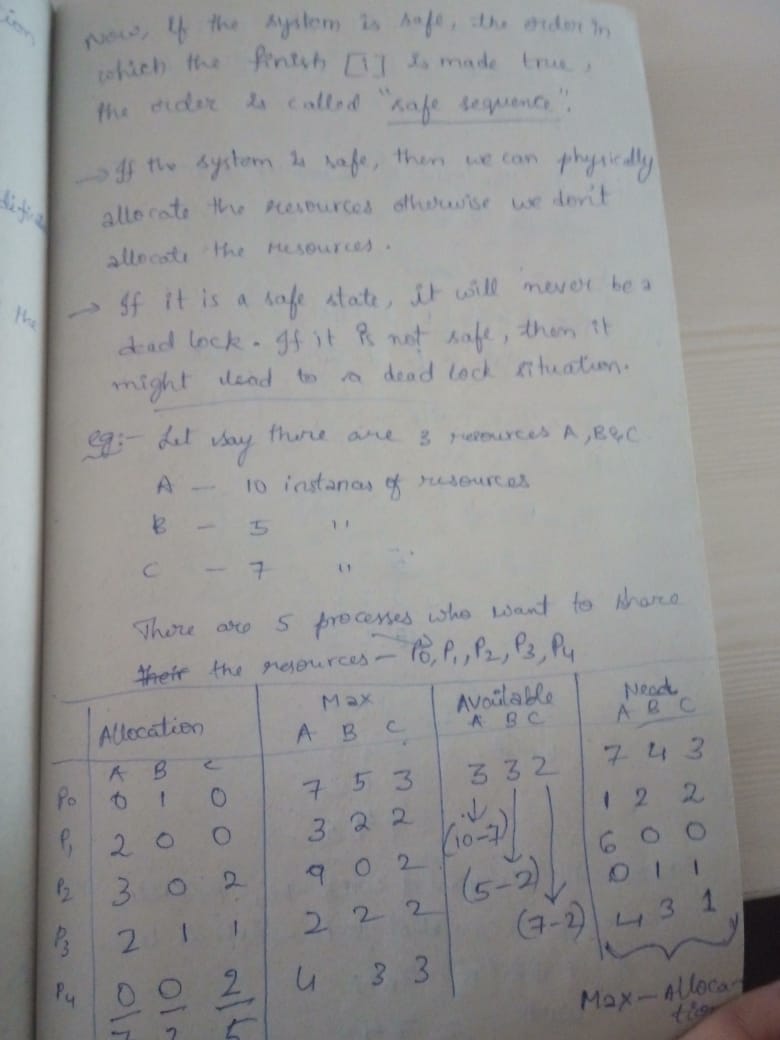 tion
Now, If the system is safe, the order in
which the finish [i] is made true,
the order is called "safe sequence".
→ If the system is safe, then we can physically
allocate the resources otherwise we don't
allocate the resources.
the
→ If it is a safe state, it will never be a
dead lock. If it is not safe, then it
might lead to a dead lock situation.
eg:- Let say there are 3 resources A, B & C
A — 10 instances of resources
B - 5 "
C - 7 "
There are 5 processes who want to share
their the resources — P0, P1, P2, P3, P4
Allocation Max Available Need
A B C A B C A B C A B C
P0 0 1 0 7 5 3 3 3 2 7 4 3
P1 2 0 0 3 2 2 (10-7) 1 2 2
P2 3 0 2 9 0 2 (5-2) 6 0 0
P3 2 1 1 2 2 2 (7-2) 0 1 1
P4 0 0 2 4 3 3 4 3 1
7 2 5
Max - Alloca-
tion